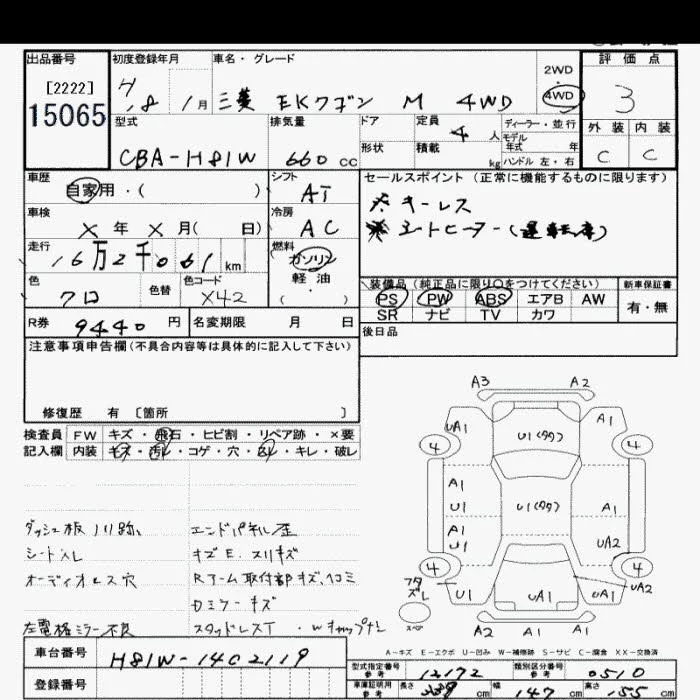 出品番号
[2222]
15065
初度登録年月
18 1月
車名・グレード
三菱 EKワゴン M 4WD
2WD
・
4WD
評価点
3
外装 内装
C C
型式
CBA-H81W
排気量
660 cc
ドア
形状
定員
4 人
積載 kg
ディーラー・並行
モデル
年式 年
ハンドル 左・右
車歴
自家用・( )
シフト
AT
セールスポイント(正常に機能するものに限ります)
キーレス
シートヒーター(運転席)
車検
X 年 X 月( 日)
冷房
AC
走行
16万2千061 km
燃料
ガソリン
軽油
( ・ )
色
色替
色コード
X42
装備品(純正品に限り○をつけてください)
PS PW ABS エアB AW
SR ナビ TV カワ
新車保証書
有・無
R券 9440 円
名変期限 月 日
後日品
注意事項申告欄(不具合内容等は具体的に記入して下さい)
修復歴 有 〔箇所 〕
検査員
記入欄
FW キズ・飛石・ヒビ割・リペア跡・×要
内装 キズ・汚れ・コゲ・穴・スレ・キレ・破レ
ダッシュ板ハリ跡
シート入レ
オーディオレス穴
左電格ミラー不良
エンドパネル歪
キズE スリキズ
Rアーム取付部キズ、ヘコミ
カミラーキズ
スタッドレスT・Wキャップナシ
A3 A2
UA1 A1
4 4
U1(タタ)
A1
U1
A1
U1
U1(タタ)
A1
UA2
4 4
フタ
ズレ
スペア
U1
UA1
UA1
UA2
A2 A1 A1
A-キズ E-エクボ U-凹み W-補修跡 S-サビ C-腐食 XX-交換済
車台番号
H81W-1402119
登録番号
型式指定番号
参考
12172
類別区分番号
参考
0510
車庫証明用
参考
長さ 339 cm 幅 147 cm 高さ 155 cm